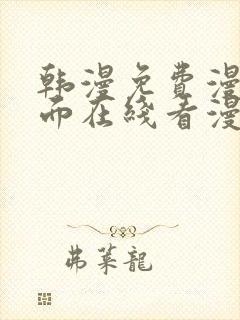 韩漫免费漫
而在线看漫
弗莱龍